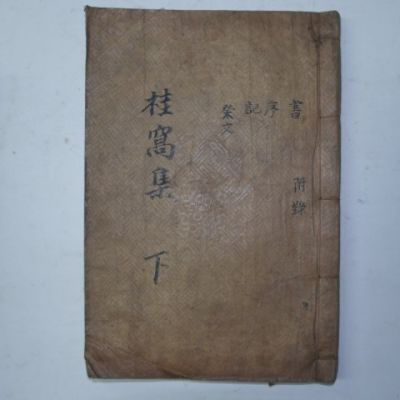 桂窩集 下
書
序
記
祭文
附錄